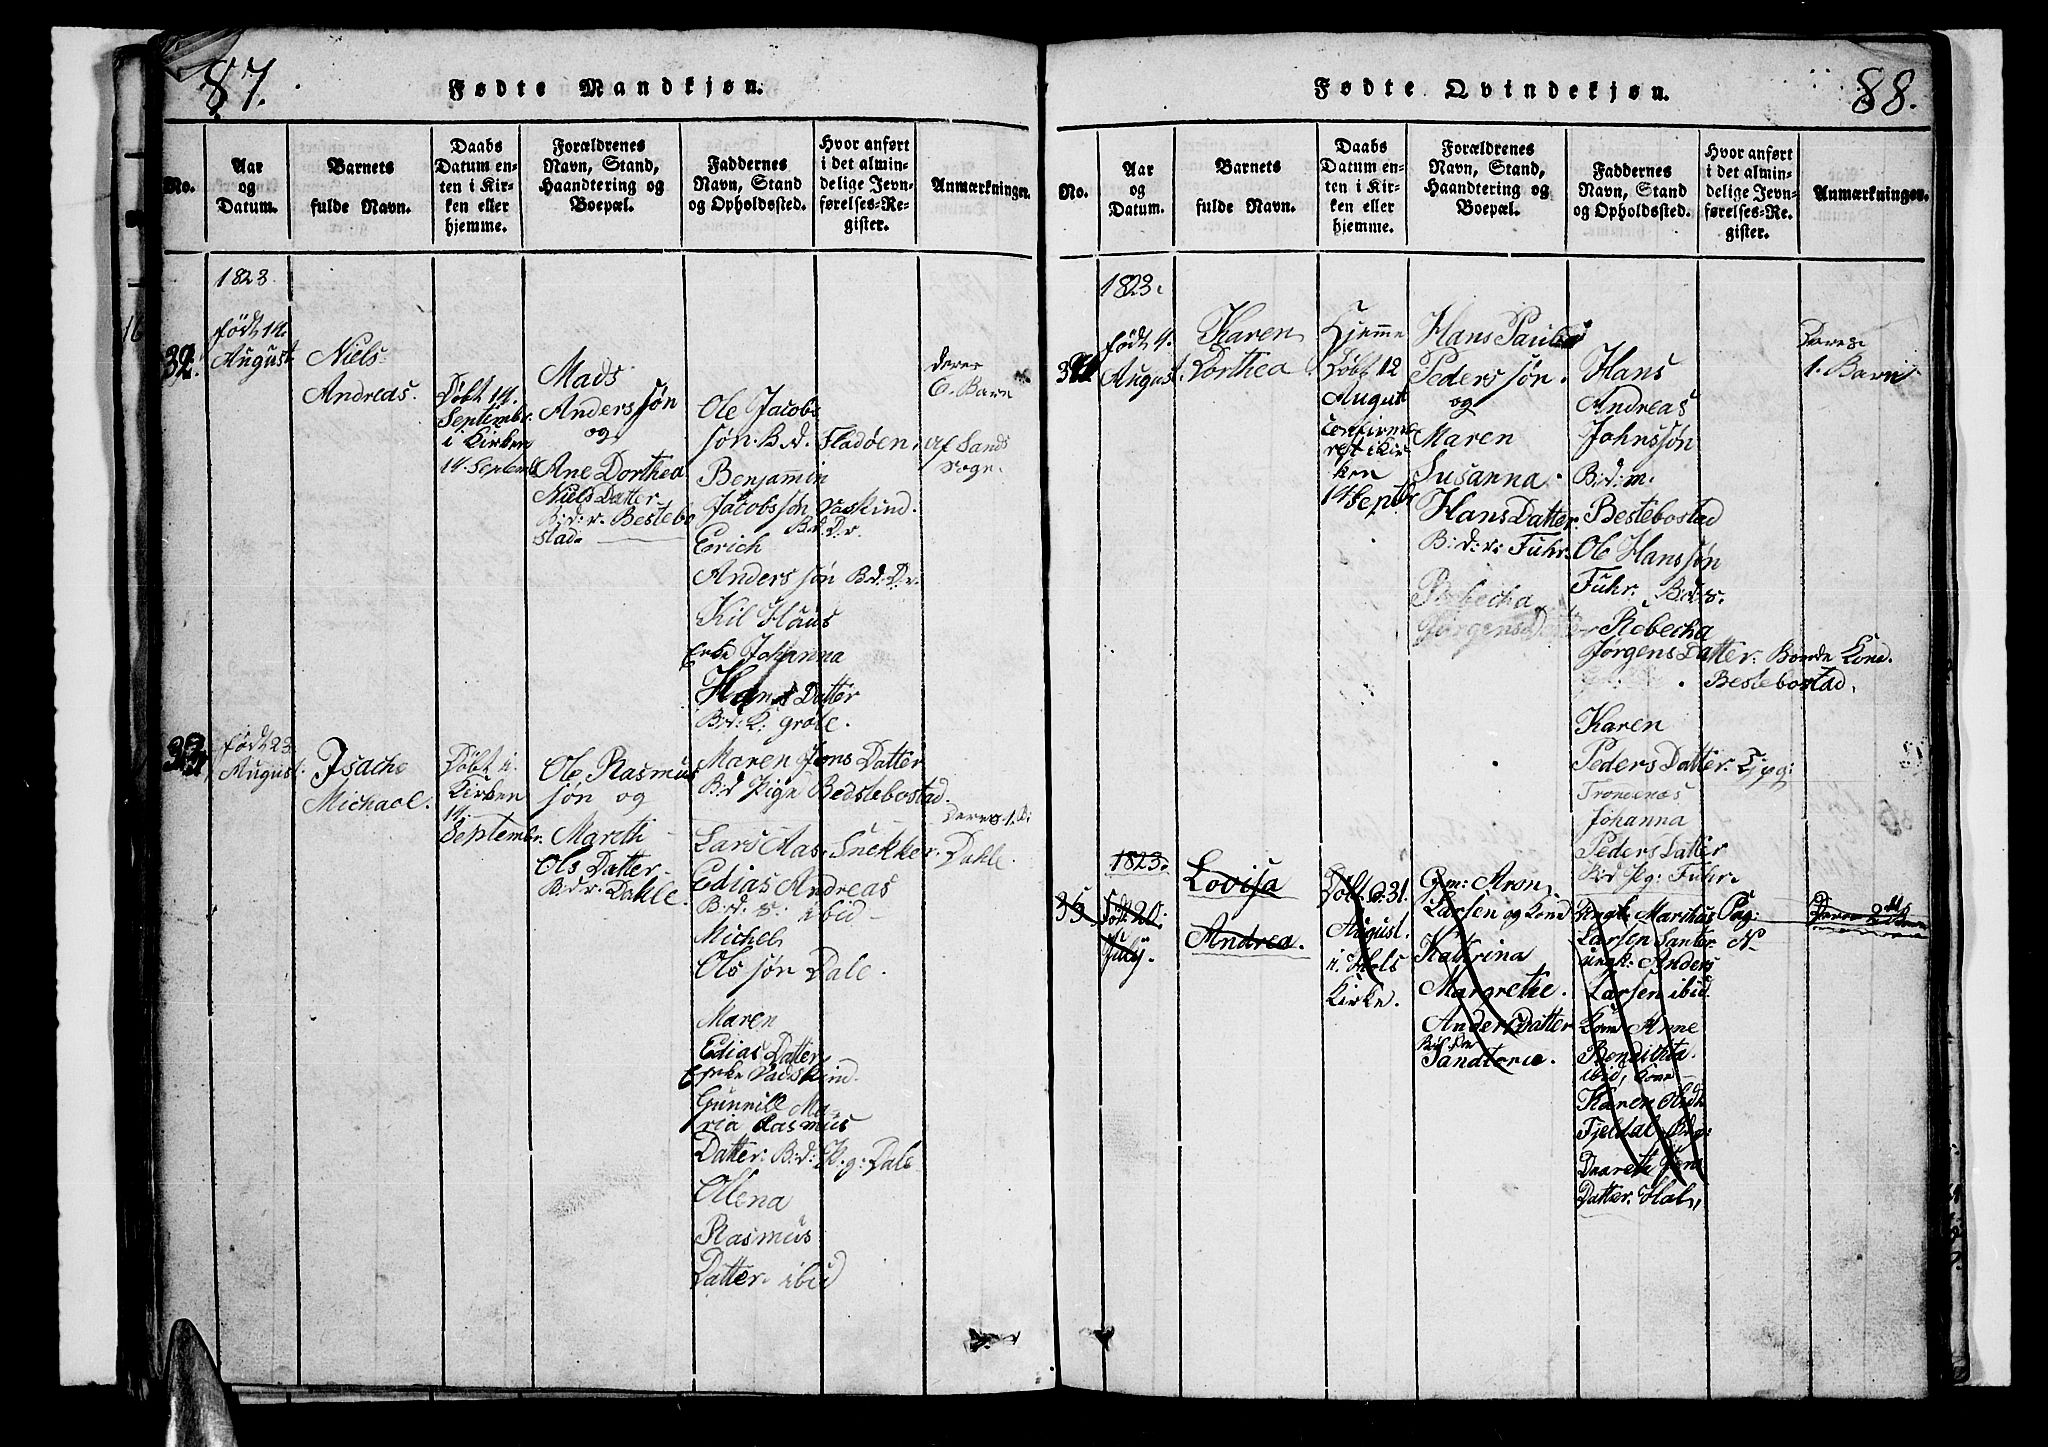 87.
Fødte Mandkjøn.
No.
Aar
og
Datum.
Barnets
fulde Navn.
Daabs
Datum en-
ten i Kir-
ken eller
hjemme.
Forældrenes
Navn, Stand,
Haandtering og
Boepæl.
Faddernes
Navn, Stand
og Opholdssted.
Hvor anført
i det almin-
delige Jevn-
førelses-Re-
gister.
Anmærkninger.
32.
1823.
født 14.
August
Niels
Andreas.
Døbt 14.
Septembr.
i Kirken
14. Septemb
Mads
Anderssøn
og
Ane Dorthea
Niels Datter
B:d:v. Bestebo
stad
Ole Jacobs
søn. B:d. Fladøen,
Benjamin
Jacobssøn Vaskind.
B:d. D:v.
Erich
Anderssøn B:d:D:v.
Kil Haus
Enke Johanna
Hans Datter
B:d: K: grote.
Maren Jons Datter
B:d Pige Bedstebostad.
deres
6. Barn
Af Sands
Sogn.
33.
født 23.
August.
Isach
Michael.
Døbt i
Kirken
14.
Septembr.
Ole Rasmus
søn og
Mareth
Ols Datter
B:d:v: Dahle.
Lars Aas, Snekker. Dahle.
Edias Andreas
B:d: s: ibid
Michel
Ols søn Dale.
Maren
Edias Datter
Enke Vadskind.
Gunnill Ma-
ria Rasmus
Datter: B:d: P.g: Dale
Ollena
Rasmus
Datter. ibid
Deres 1. B:
88.
Fødte Qvindekjøn.
No.
Aar
og
Datum.
Barnets
fulde Navn.
Daabs
Datum en-
ten i Kir-
ken eller
hjemme.
Forældrenes
Navn, Stand,
Haandtering og
Boepæl.
Faddernes
Navn, Stand
og Opholdssted.
Hvor anført
i det almin-
delige Jevn-
førelses-Re-
gister.
Anmærkninger.
34.
1823.
født 4.
August.
Karen
Dorthea
Hjemme
Døbt 12
August
Confirme
rest i Kir
ken
14 Septbr
Hans Paul
Peders søn.
og
Maren
Susanna.
Hans Datter
B:d:v: Fuhr.
Rebecha
Jørgens Datter
Hans
Andreas
Johnssøn
B:d:m.
Bestebostad
Ole Hanssøn
Fuhr. B:d:s.
Rebecka
Jørgens Datter: Bonde Kone.
Bestebostad.
Karen
Peders Datter. Tj pg:
Tronenæs
Johanna
Peders Datter
B:d Pg: Fuhr.
Deres
1. Barn.
35.
1823.
født 20.
July.
Lovisa
Andrea.
Døbt d: 31.
August.
i Hols
Kirke.
Gm: Aron
Larsen og Kone
Katrina
Margrethe.
Anders Datter
Sandtorie.
Ungk: Marthus
Larsen Santor.
ungk: Anders
Larsen ibid.
Kone Anne
Bendictta.
ibid, Kone
Karen
Fjeldal, Pige
Daareth
Datter. Hol,
Pag:
N
Deres 2det Barn